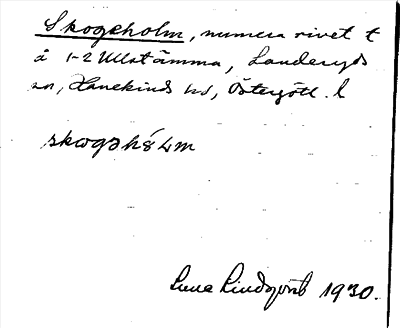 Skogeholm, numera rivet t
å 1-2 Ullstämma, Landeryds
sn, Hanekinds hd, Östergötl. l
skogəhå4m
Sune Lindqvist 1930.